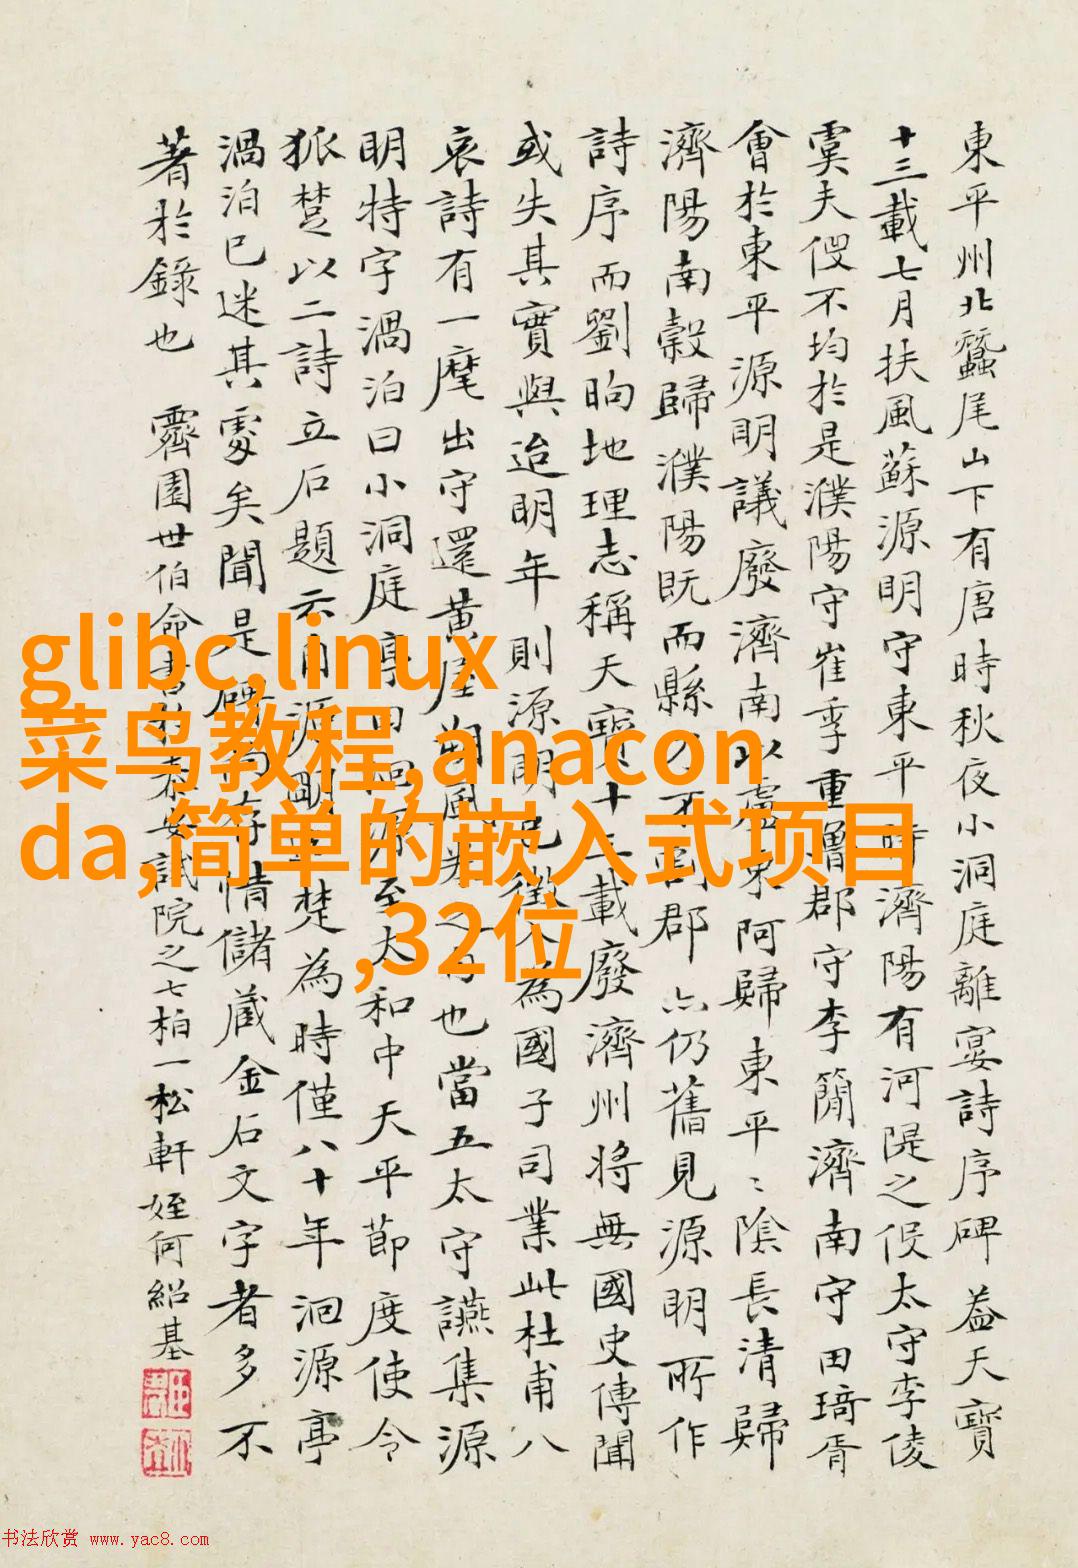 東平州北蠶尾山下有唐時秋夜小洞庭離宴詩序碑葢天寶
十三載七月扶風蘇源明守東平時濟陽有河隄之役太守李倰
虞夫役不均於是濮陽守崔季重魯郡守李簡濟南守田琦胥
會於東平源明議廢濟南以盧東阿歸東平〻陰長清歸
濟陽南穀歸濮陽既而縣不郡仍舊見源明所作
詩序而劉昫地理志稱天寶十三載廢濟州將無國史傳聞
或失其實與迨明年則源明徵入為國子司業此杜甫八
哀詩有一麾出守還黃屋朔風卷也當五太守讌集源
明特字渦泊曰小洞庭亭曰洄源至大和中天平節度使令
狐楚以二詩立石題云自源明至楚為時僅八十年洄源亭
渦泊已迷其處矣聞是碑尚存惜儲蔵金石文字者多不
著於錄也 霽園世伯命書於泰安試院之七柏一松軒 姪何紹基
glibc,linux
菜鸟教程,anacon
da,简单的嵌入式项目
,32位
书法欣赏 www.yac8.com